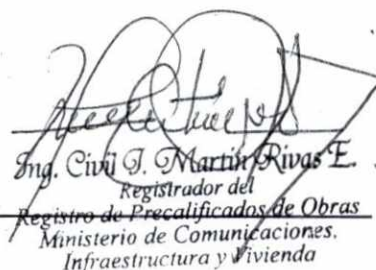 Ing. Civil J. Martin Rivas E.
Registrador del
Registro de Precalificados de Obras
Ministerio de Comunicaciones.
Infraestructura y Vivienda